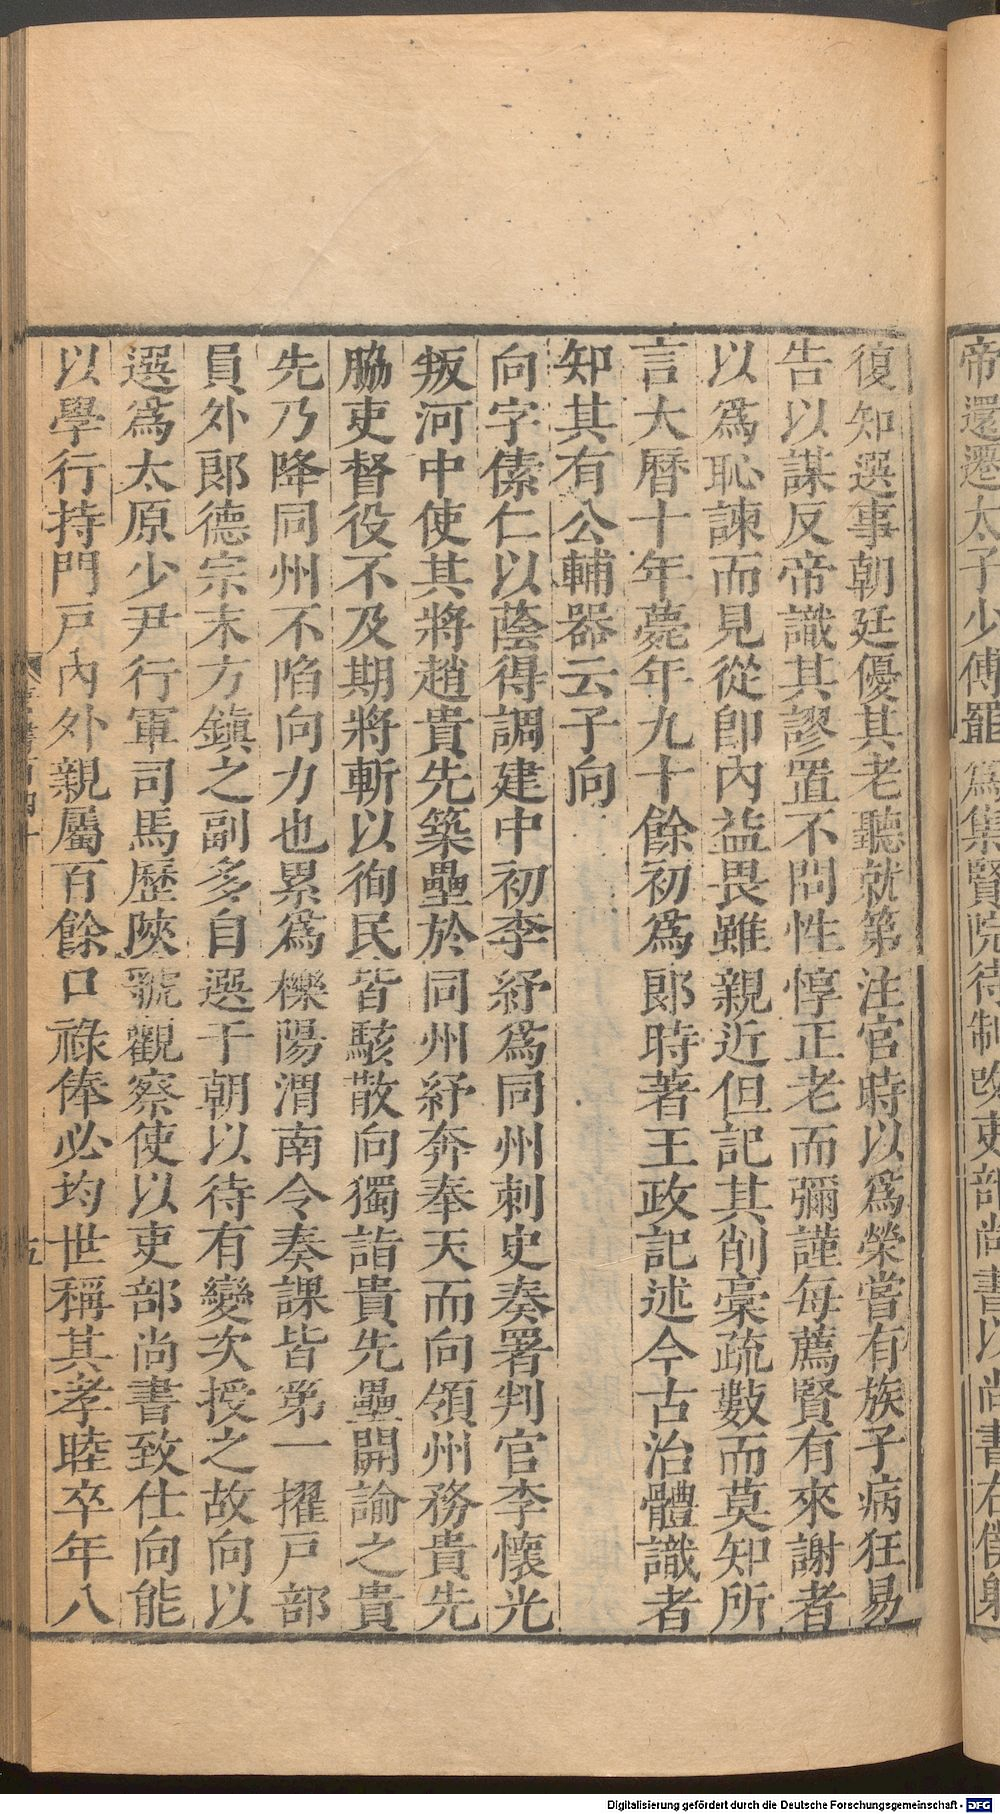 帝還遷太子少傅罷爲集賢院待制改吏部尚書以尚書右僕射
復知選事朝廷優其老聽就第注官時以爲榮嘗有族子病狂易
告以謀反帝識其謬置不問性惇正老而彌謹每薦賢有來謝者
以爲恥諫而見從卽內益畏雖親近但記其削稾疏數而莫知所
言大曆十年薨年九十餘初爲郞時著王政記述今古治體識者
知其有公輔器云子向
向字傃仁以蔭得調建中初李紓爲同州刺史奏署判官李懷光
叛河中使其將趙貴先築壘於同州紓奔奉天而向領州務貴先
脇吏督役不及期將斬以徇民皆駭散向獨詣貴先壘開諭之貴
先乃降同州不陷向力也累爲櫟陽渭南令奏課皆第一擢戸部
員外郞德宗末方鎭之副多自選于朝以待有變次授之故向以
選爲太原少尹行軍司馬歷陝虢觀察使以吏部尚書致仕向能
以學行持門戸內外親屬百餘口祿俸必均世稱其孝睦卒年八
五
Digitalisierung gefördert durch die Deutsche Forschungsgemeinschaft - DFG